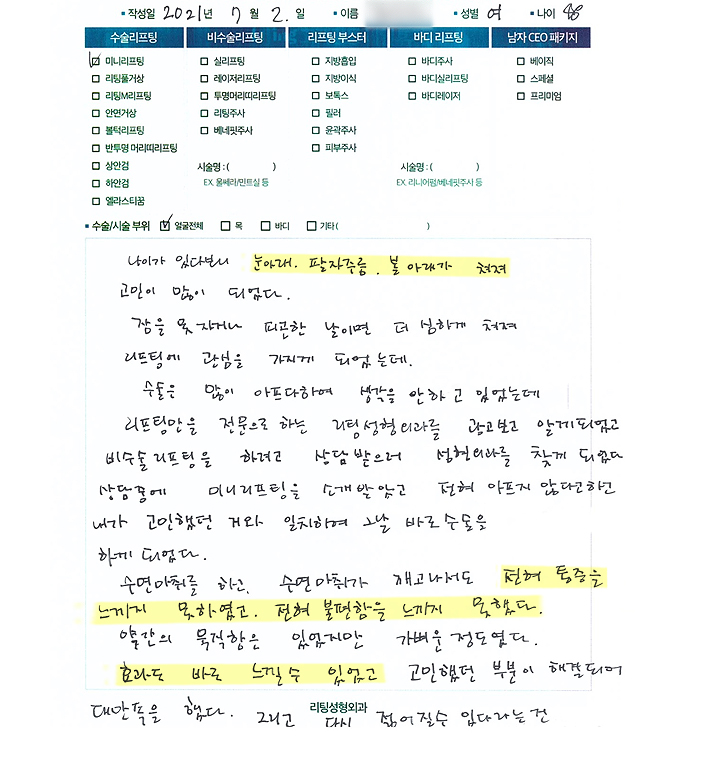 ▪ 작성일 2021년 7월 2.일 ▪ 이름 ▪ 성별 여 ▪ 나이 48
수술리프팅 비수술리프팅 리프팅 부스터 바디 리프팅 남자 CEO 패키지
미니리프팅 실리프팅 지방흡입 바디주사 베이직
리팅풀거상 레이저리프팅 지방이식 바디실리프팅 스페셜
리팅M리프팅 투명머리띠리프팅 보톡스 바디레이저 프리미엄
안면거상 리팅주사 필러
볼턱리프팅 베네핏주사 윤곽주사
반투명 머리띠리프팅 피부주사
상안검 시술명 : ( ) 시술명 : ( )
하안검 EX. 울쎄라/민트실 등 EX. 리니어펌/베네핏주사 등
엘라스티꿈
▪ 수술/시술 부위 얼굴전체 목 바디 기타 ( )
나이가 있다보니 눈아래. 팔자주름. 볼 아래가 쳐져
고민이 많이 되었다.
잠을 못 자거나 피곤한 날이면 더 심하게 쳐져
리프팅에 관심을 가지게 되었는데.
수술은 많이 아프다하여 생각을 안하고 있었는데
리프팅만을 전문으로 하는 리팅성형외과를 광고보고 알게되었고
비수술리프팅을 하려고 상담받으러 성형외과를 찾게 되었다
상담중에 미니리프팅을 소개받았고 전혀 아프지 않다고하고
내가 고민했던 거와 일치하여 그날 바로 수술을
하게 되었다.
수면마취를 하고, 수면마취가 깨고나서도 전혀 통증을
느끼지 못하였고. 전혀 불편함을 느끼지 못했다.
약간의 묵직함은 있었지만 가벼운 정도였다.
효과도 바로 느낄수 있었고 고민했던 부분이 해결되어
대만족을 했다. 그리고 다시 젊어질수 있다라는건
리팅성형외과